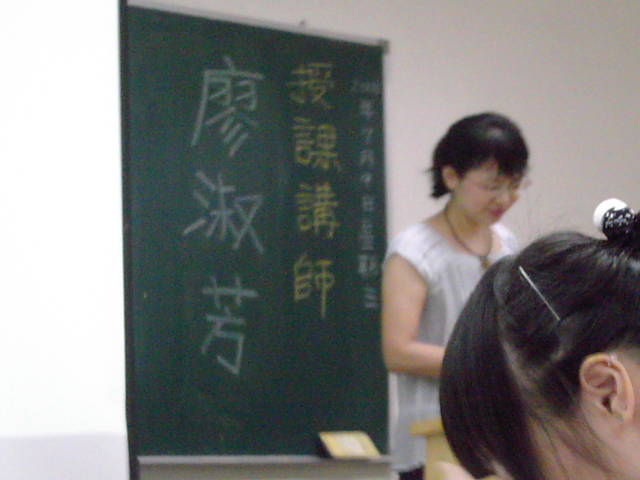 2008年7月9日星期三
授課講師
廖淑芳